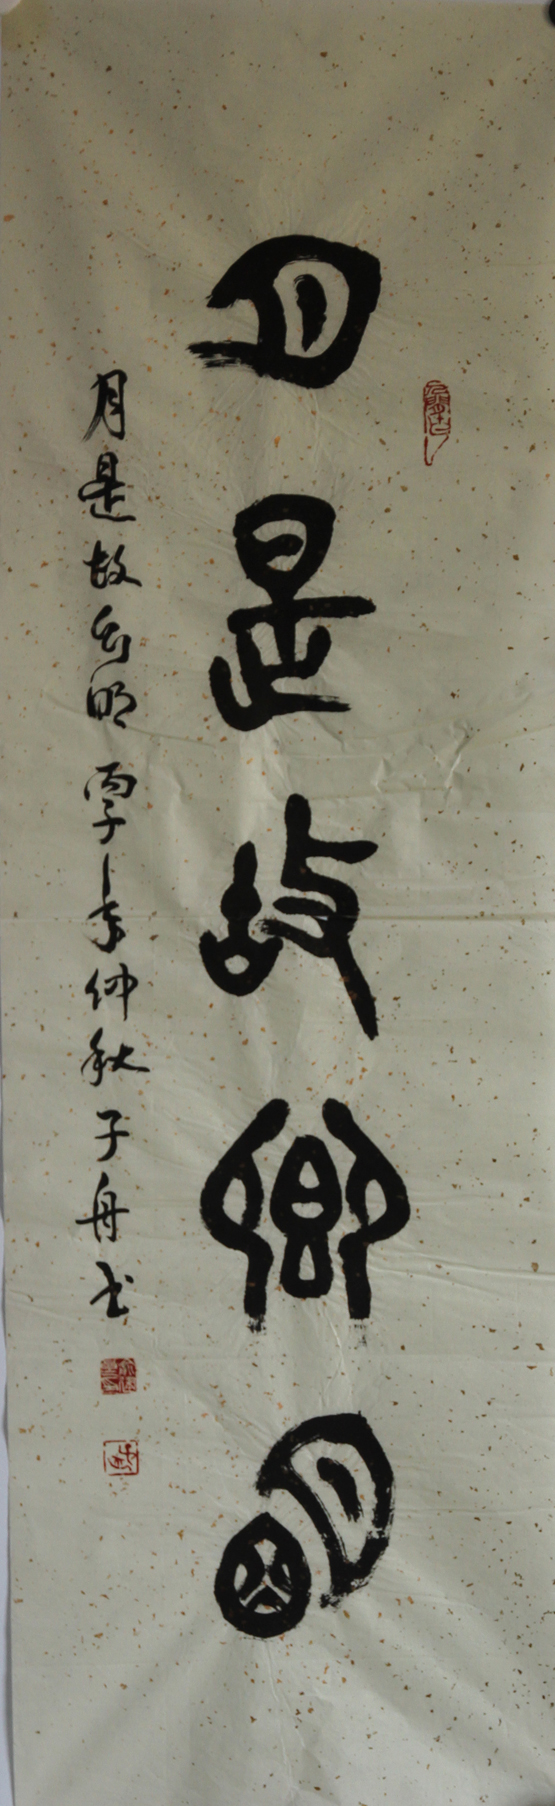 月是故鄉明
月是故鄉明 丙子年仲秋子舟书